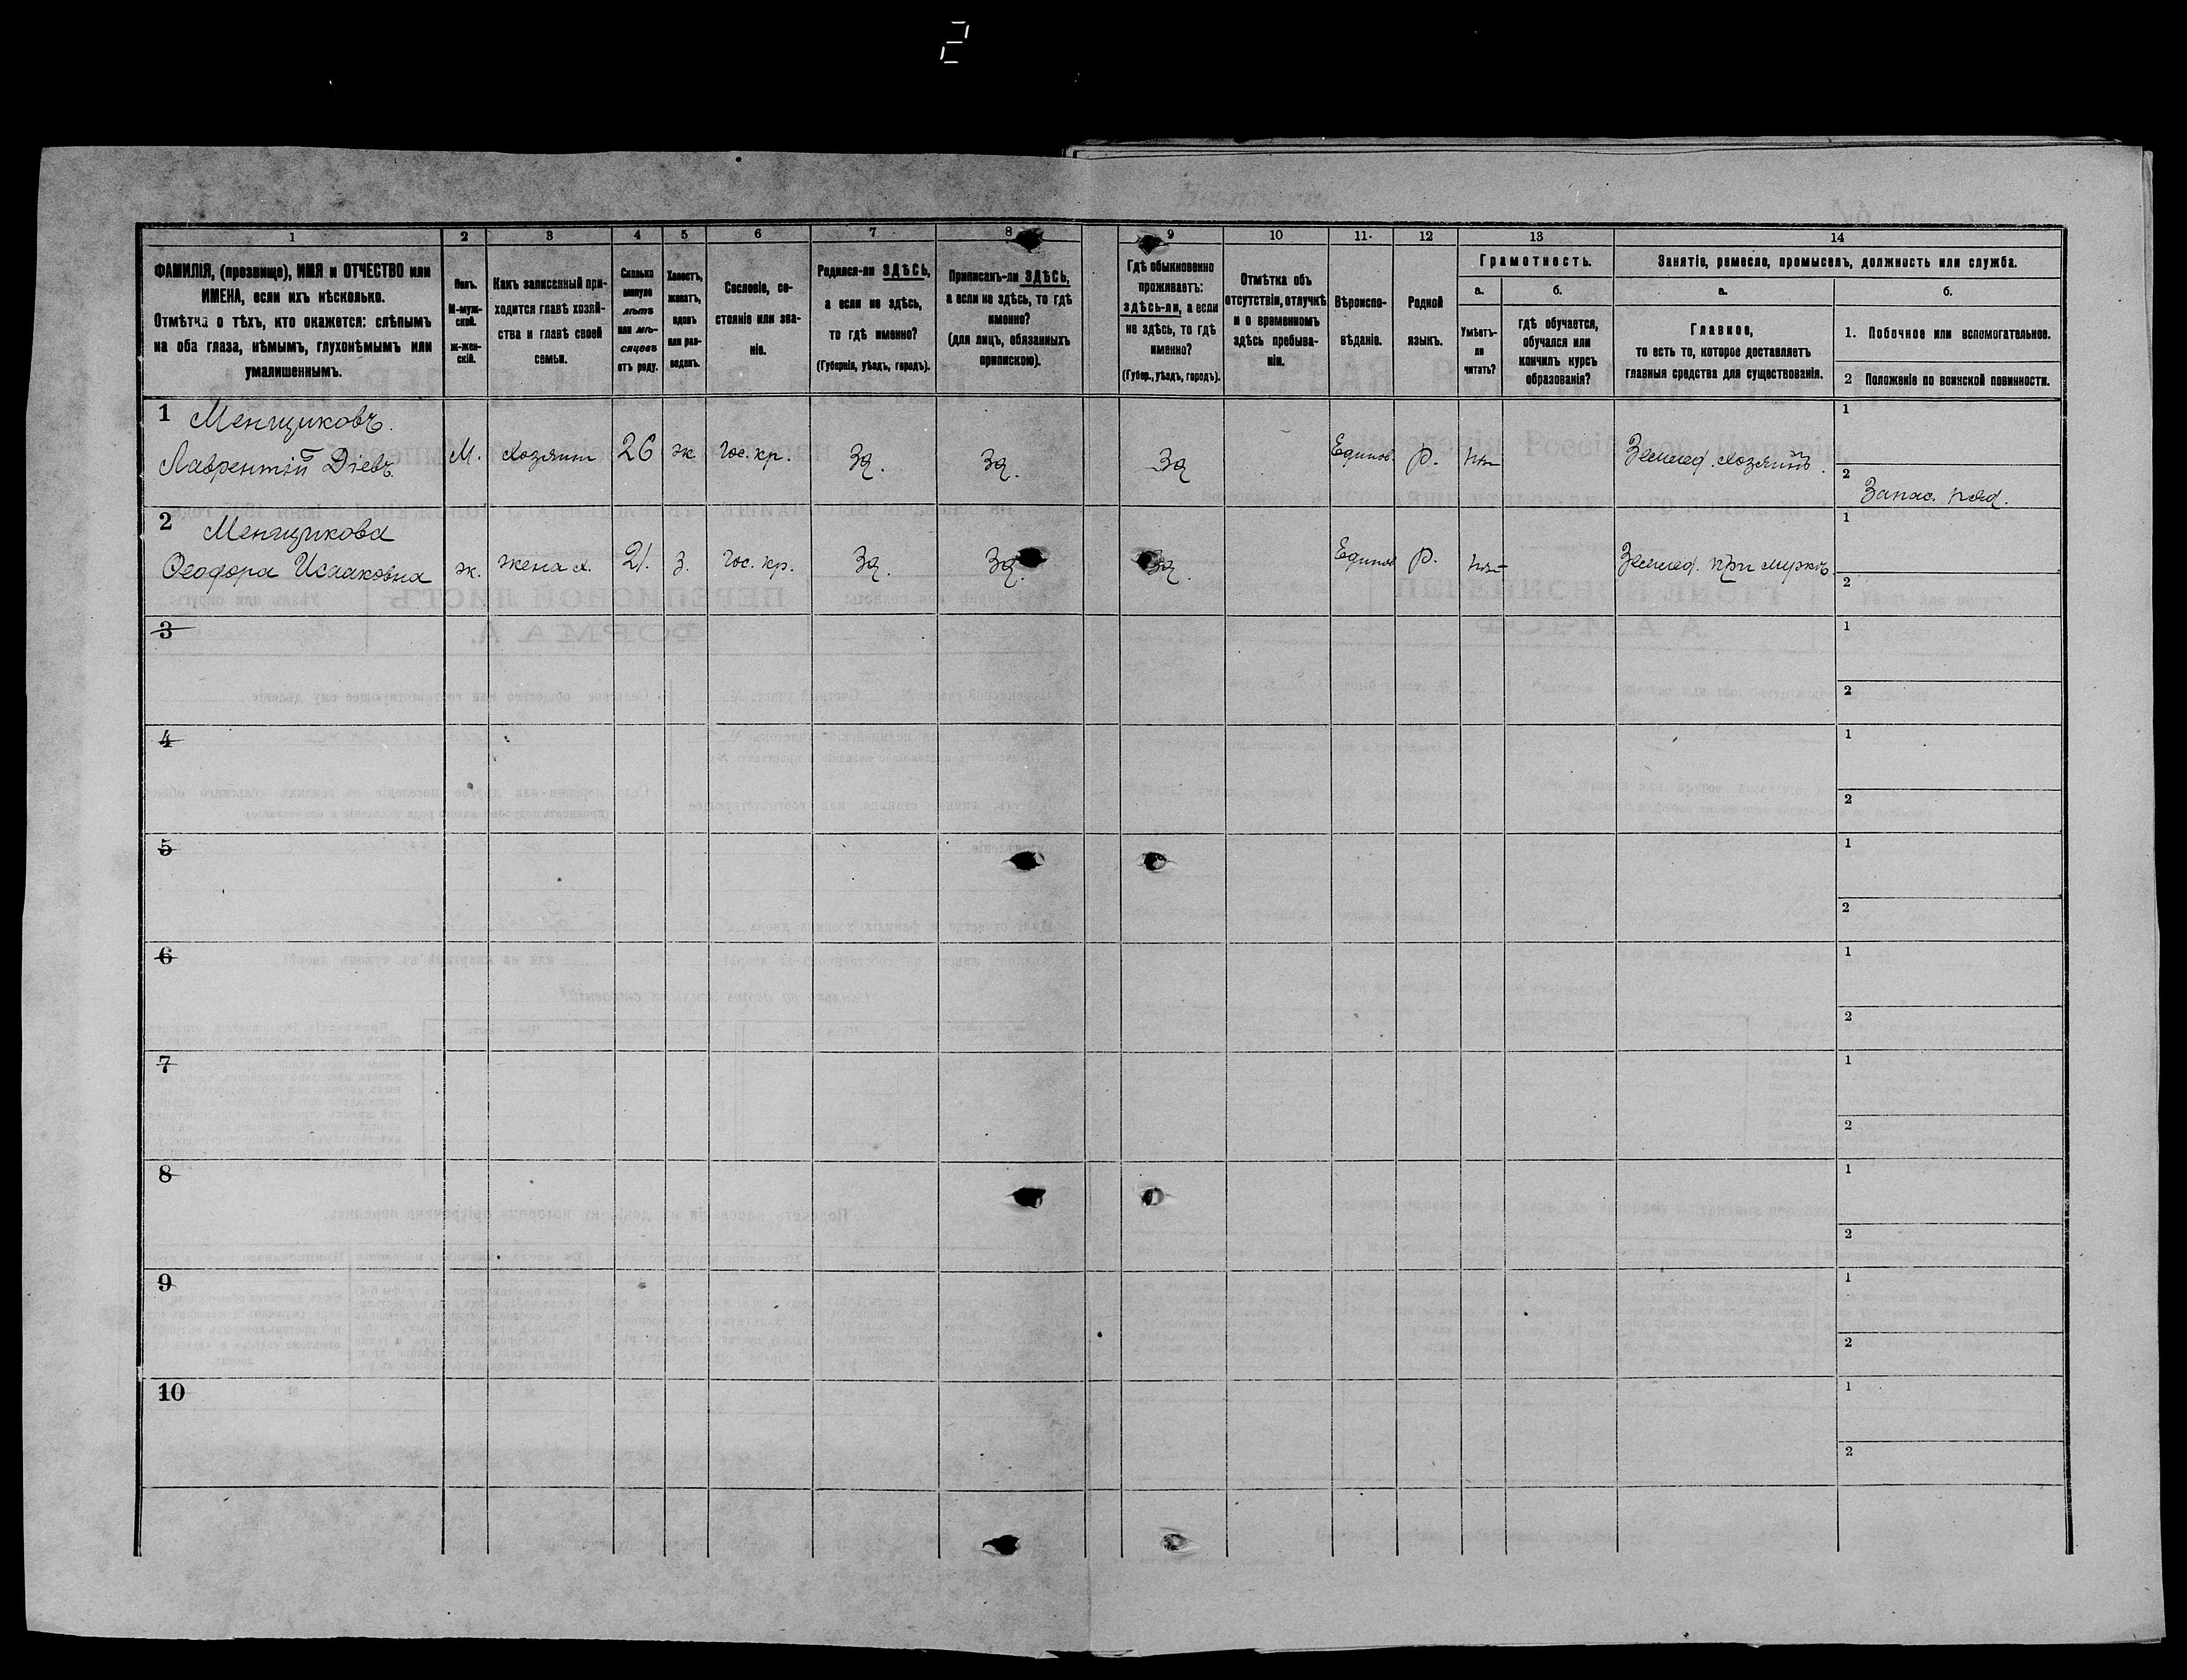 2
1
2
3
4
5
6
7
8
9
10
11.
12
13
14
ФАМИЛІЯ, (прозвище), ИМЯ и ОТЧЕСТВО или
ИМЕНА, если ихъ нѣсколько.
Отмѣтка о тѣхъ, кто окажется: слѣпымъ
на оба глаза, нѣмымъ, глухонѣмымъ или
умалишеннымъ.
Полъ.
М-муж-
ской.
ж-жен-
скій.
Какъ записанный при-
ходится главѣ хозяй-
ства и главѣ своей
семьи.
Сколько
минуло
лѣтъ
или мѣ-
сяцевъ
отъ роду.
Холостъ,
женатъ,
вдовъ
или раз-
веденъ.
Сословіе, со-
стояніе или зва-
ніе.
Родился-ли ЗДѢСЬ,
а если не здѣсь,
то гдѣ именно?
(Губернія, уѣздъ, городъ).
Приписанъ-ли ЗДѢСЬ,
а если не здѣсь, то гдѣ
именно?
(для лицъ, обязанныхъ
припискою).
Гдѣ обыкновенно
проживаетъ:
здѣсь-ли, а если
не здѣсь, то гдѣ
именно?
(Губер., уѣздъ, городъ).
Отмѣтка объ
отсутствіи, отлучкѣ
и о временномъ
здѣсь пребыва-
ніи.
Вѣроиспо-
вѣданіе.
Родной
языкъ.
Грамотность.
а.
Умѣетъ-
ли
читать?
б.
гдѣ обучается,
обучался или
кончилъ курсъ
образованія?
Занятіе, ремесло, промыселъ, должность или служба.
а.
Главное,
то есть то, которое доставляетъ
главныя средства для существованія.
б.
1. Побочное или вспомогательное.
2 Положеніе по воинской повинности.
1 Менщиковъ.
Лаврентій Діевъ.
М.
хозяинъ
26
ж
Гос. кр.
Зд.
Зд.
Зд
Единов.
Р.
нѣт
Землед. хозяинъ.
1
2
Запас. ряд.
2 Менщикова
Ѳеодора Исааковна
ж.
жена х.
21.
з.
Гос. кр.
Зд.
Зд.
Зд.
Единов
Р.
нѣт
Землед. при мужѣ.
1
2
3
1
2
4
1
2
5
1
2
6
1
2
7
1
2
8
1
2
9
1
2
10
1
2